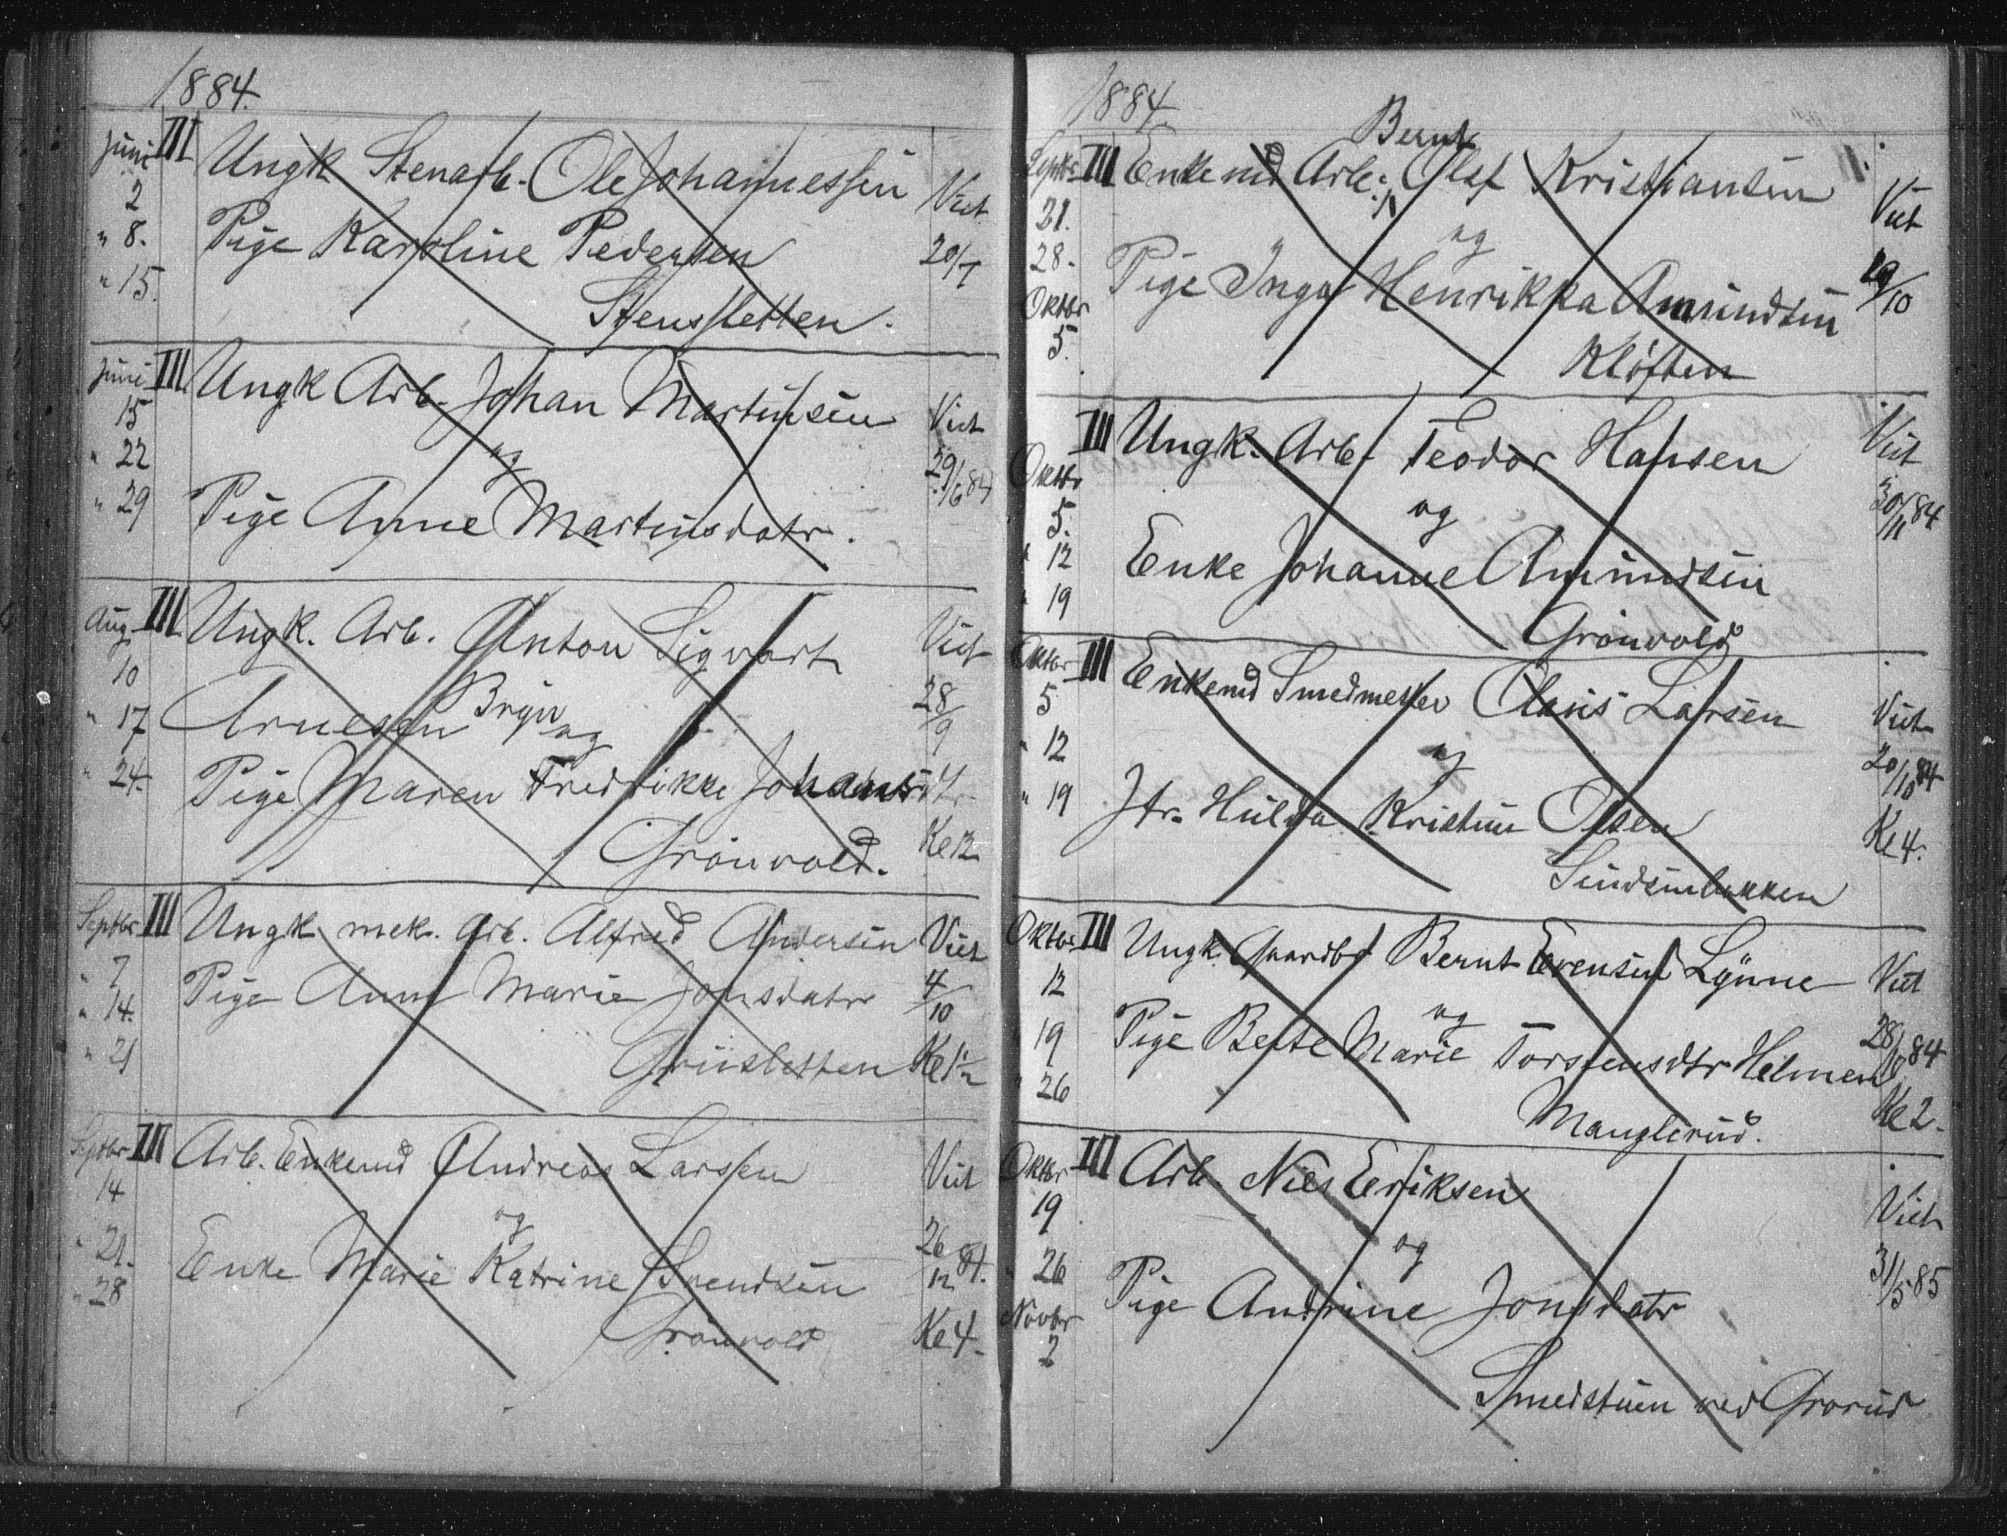 1884.
Juni III Ungk Stenarb. Ole Johannessen Viet
2
" 8. Pige Karoline Pedersen 20/7
" 15. Stensletten.
Juni III Ungk Arb. Johan Martinsen Viet
15
" 22 og 29/6 84
" 29 Pige Anne Martinsdatr.
Aug. III Ungk. Arb. Anton Sigvart Viet
10
" 17 Arnesen Bryn og 28/9
" 24. Pige Maren Fredrikke Johansdtr
Grönvold. Ke 12
Septbr III Ungk mek. Arb. Alfred Andersen Viet
" 7 Pige Anne Marie Jonsdatr 4/10
" 14.
" 21 Grinsletten Ke 1½
Septbr III Arb. Enkemd Andreas Larssen Viet
14 og
" 21. Enke Marie Katrine Svendsen 26/12 84.
" 28 Grönvold Ke 4.
1884.
Bernt
Septbr III Enkemd Arb. Olaf Kristiansen Viet
21.
28. og
Oktbr Pige Inga Henrikka Amundsen 19/10
5. Kløften
Oktbr III Ungk. Arb. Teodor Hansen Viet
5. og 30/11 84
" 12 Enke Johanne Amundsen
" 19 Grönvold
Oktbr III Enkemd Smedmester Claus Larsen Viet
5
" 12 og 20/10 84
" 19 Jfr. Hulda Kristine Olsen Ke 4.
Oktbr III Ungk. Gaardbr Bernt Evensen Lynne Viet
12 og
" 19 Pige Berte Marie Torstensdtr Helmen 28/10 84
" 26 Manglerud. Ke 2.
Oktbr III Arb. Nils Eriksen Viet
19 og
" 26 Pige Andrine Jonsdatr 31/5 85
Novbr
2 Smedstuen ved Grorud